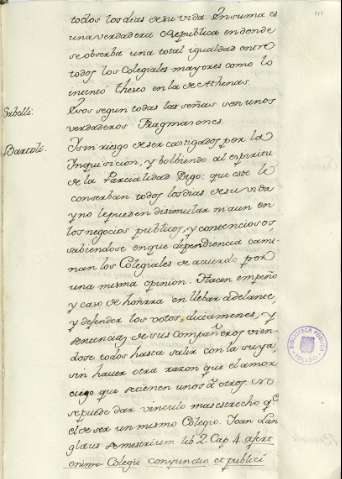 todos los dias de su vida. En suma es
una verdadera Republica en donde
se observa una total igualdad entre
todos los Colegiales mayores como lo
mismo Theseo en la de Athenas.
Saballs. Esos segun todas las señas son unos
verdaderos Fragmasones.
Barceló. Sin riesgo de ser castigados por la
Inquisicion, y bolbiendo al espiritu
de la Parcialidad Digo: que este le
conserban todos los dias de su vida
y no le pueden disimular ni aun en
los negocios publicos, y contenciosos
sabiendose en que dependencia cami-
nan los Colegiales de acuerdo por
una misma opinion. Hacen empeño
y caso de honrra en lleber adelante,
y defender los votos, dictamenes, y
sentencias de sus compañeros, vien-
dose todos hasta salir con la suya,
sin haver otra razon que el amor
ciego que se tienen unos a otros. No
se puede dar vinculo mas estrecho qe.
el de ser un mismo Colegio. Joan
lib 2. Cap. 4.
Colegii et publici